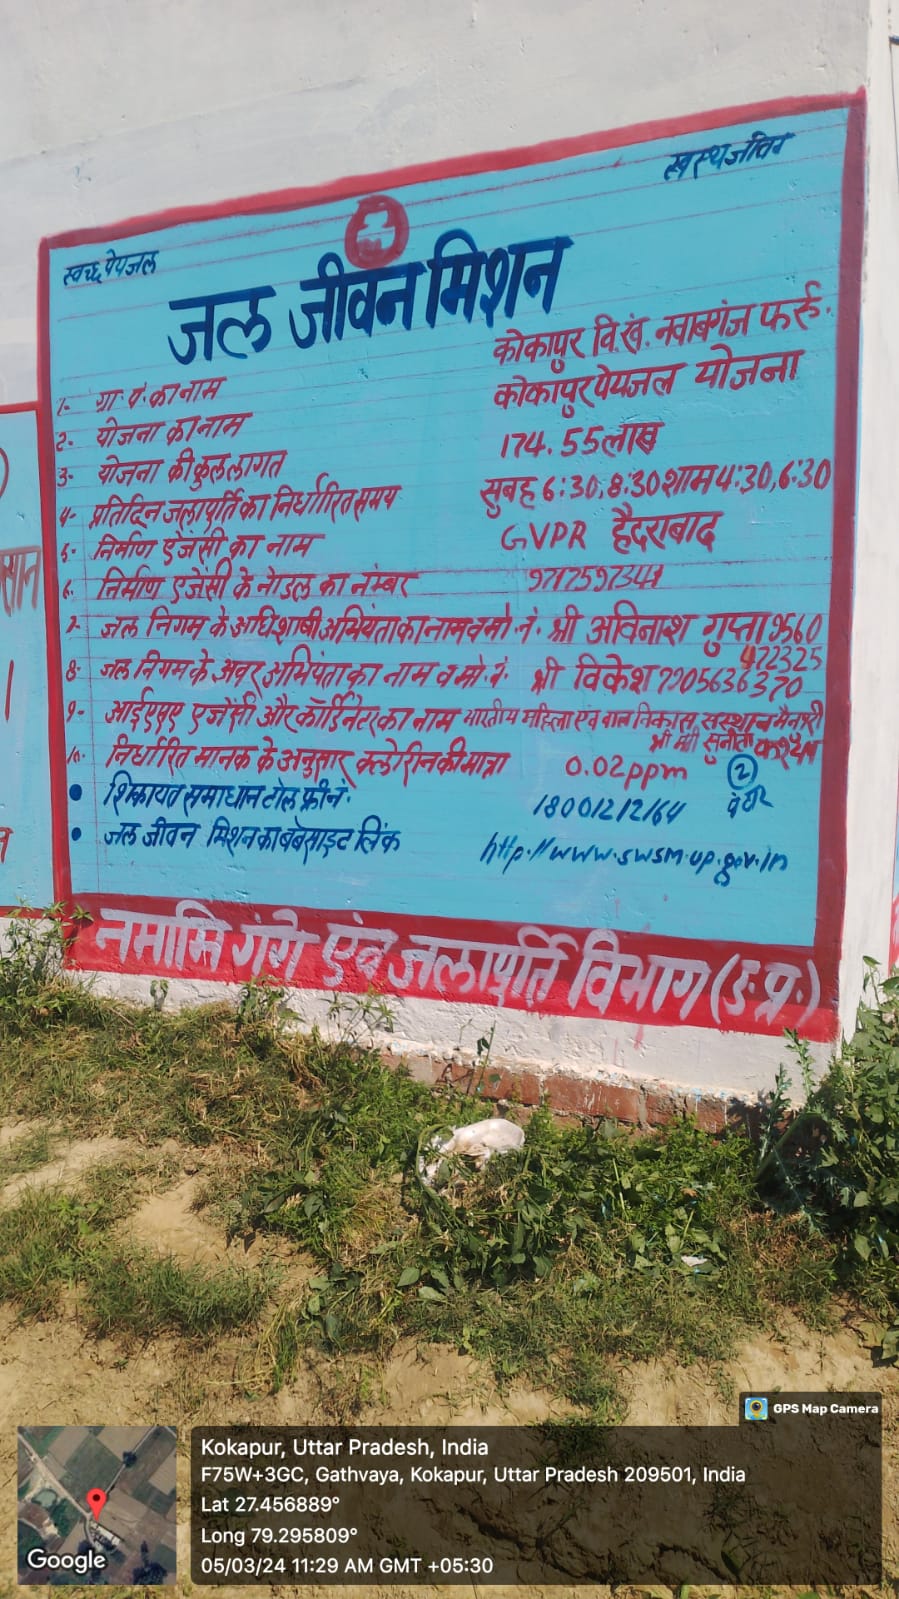 स्वस्थ जीवन
स्वच्छ पेयजल
जल जीवन मिशन
1- ग्रा. पं. का नाम कोकापुर वि.खं. नवाबगंज फर्रु.
2- योजना का नाम कोकापुर पेयजल योजना
3- योजना की कुल लागत 174.55 लाख
4- प्रतिदिन जलापूर्ति का निर्धारित समय सुबह 6:30,8:30 शाम 4:30,6:30
5- निर्माण ऐजेंसी का नाम GVPR हैदराबाद
6. निर्माण ऐजेंसी के नोडल का नम्बर
7- जल निगम के अधिशाषी अभियंता का नाम व मो. नं. श्री अविनाश गुप्ता 9560
472325
8- जल निगम के अवर अभियंता का नाम व मो. नं. श्री विकेश 7905636370
9- आईएसए एजेंसी और कॉर्डिनेटर का नाम भारतीय महिला एवं बाल विकास संस्थान मैनपुरी
श्री मती सुनीता
10- निर्धारित मानक के अनुसार क्लोरीन की मात्रा 0.02ppm 2
• शिकायत समाधान टोल फ्री नं. 18001212164
पेंटर
• जल जीवन मिशन का बेबसाइट लिंक http://www.swsm.up.gov.in
नमामि गंगे एवं जलापूर्ति विभाग (उ.प्र.)
GPS Map Camera
Kokapur, Uttar Pradesh, India
F75W+3GC, Gathvaya, Kokapur, Uttar Pradesh 209501, India
Lat 27.456889°
Long 79.295809°
05/03/24 11:29 AM GMT +05:30
Google